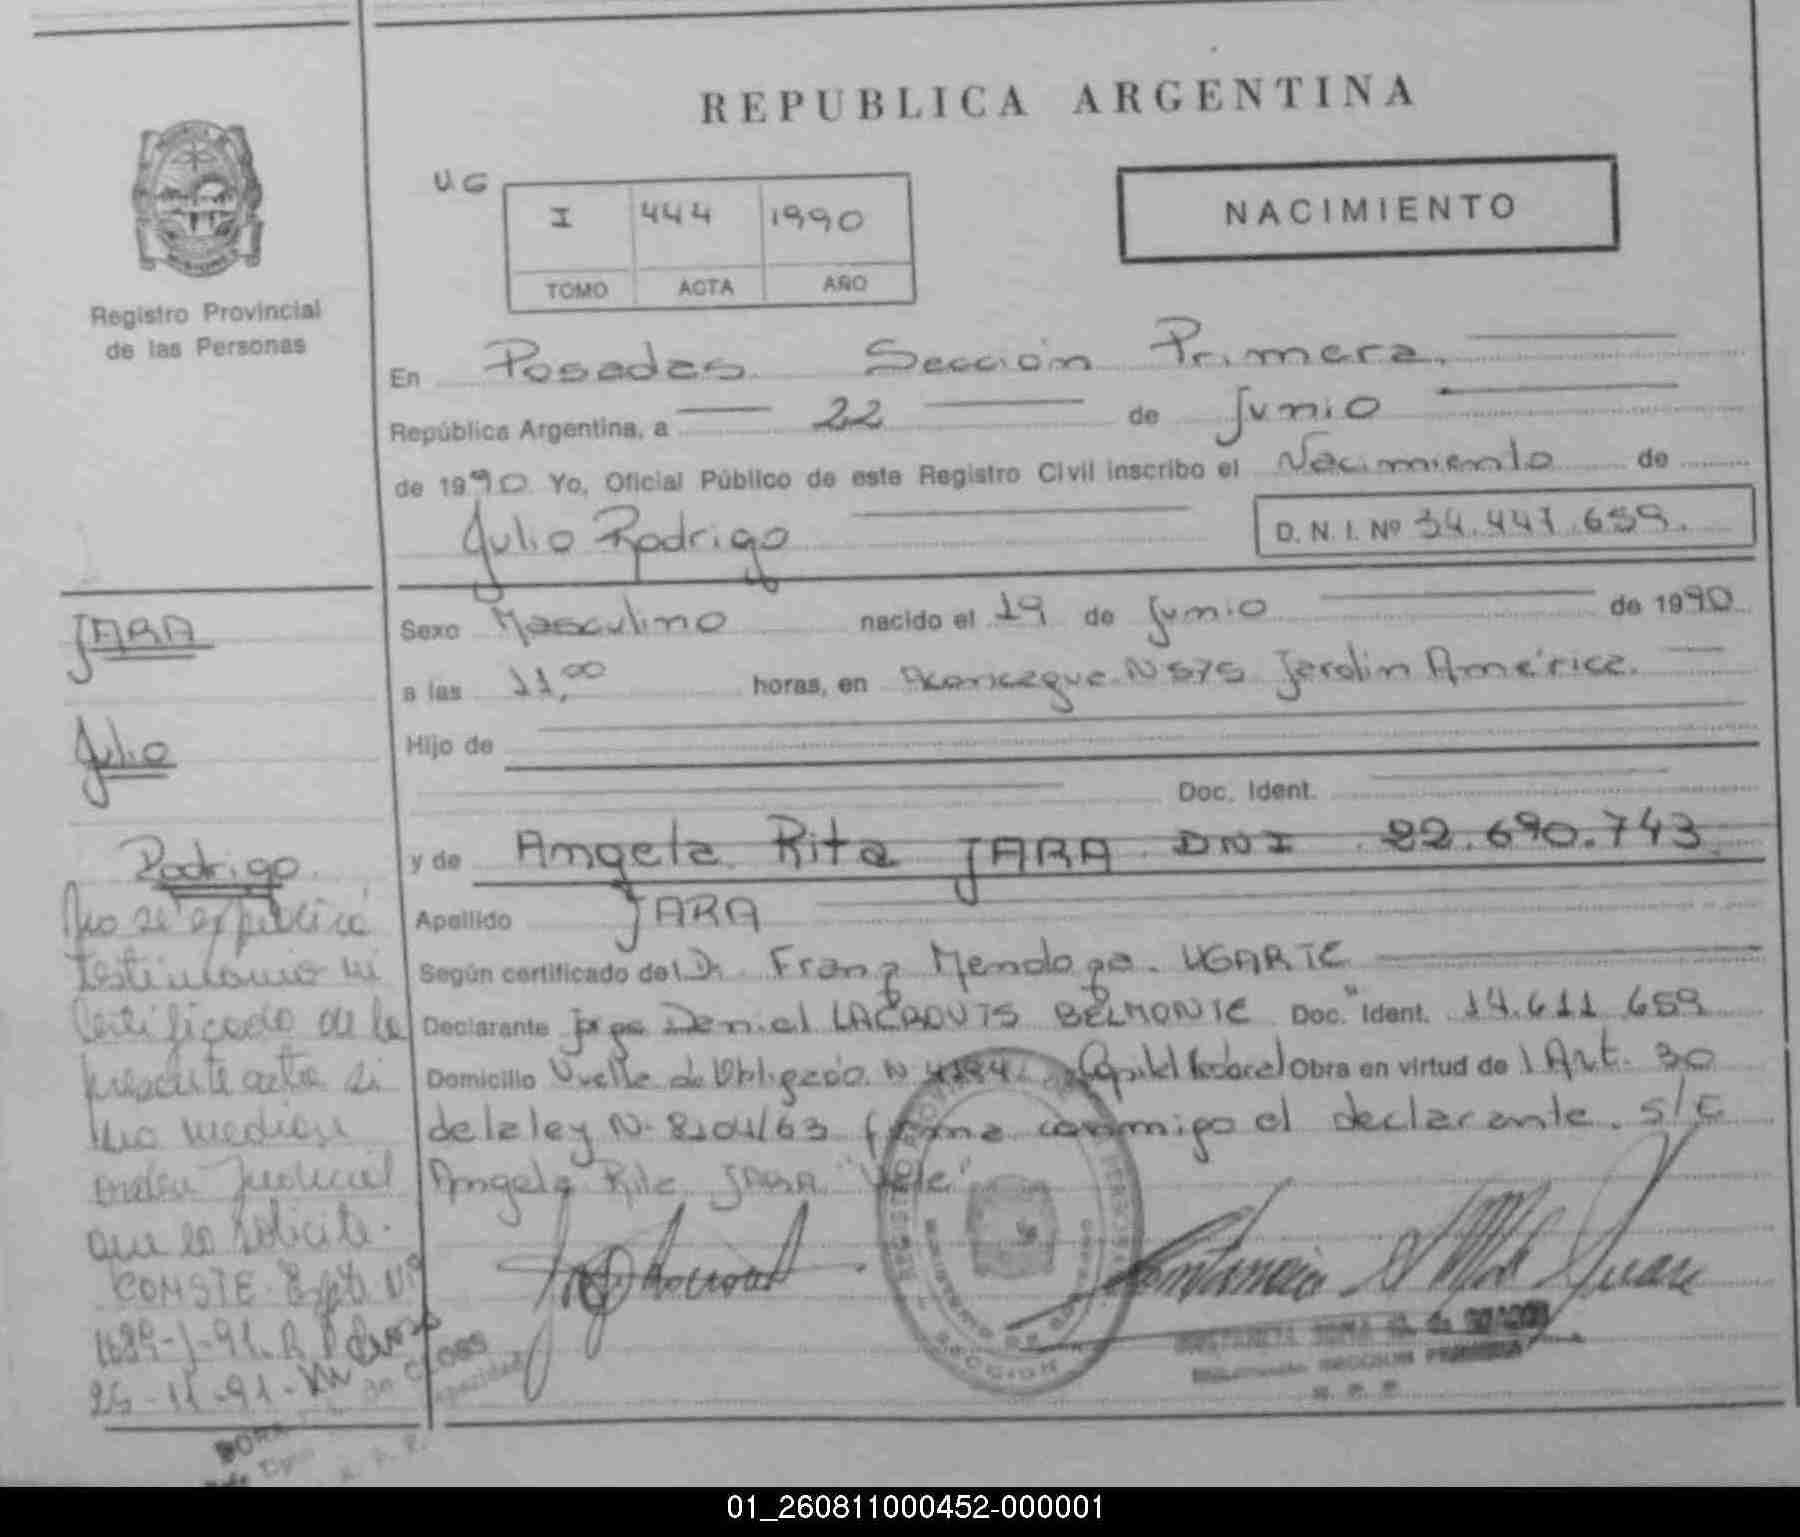 REPUBLICA ARGENTINA
UG
I 444 1990
TOMO ACTA AÑO
NACIMIENTO
Registro Provincial
de las Personas
En Posadas Sección Primera.
República Argentina, a 22 de Junio
de 1990 Yo, Oficial Público de este Registro Civil inscribo el Nacimiento de
Julio Rodrigo D. N. I. Nº 34.447.659.
Sexo Masculino nacido el 19 de Junio de 1990
a las 11,00 horas, en N 575 Jardin América.
Hijo de
Doc. Ident.
y de Angela Rita JARA DNI 22.690.743
Apellido JARA
Según certificado del Dr. Franz Mendoza. UGARTE
Declarante Jorge Daniel LACROUTS BELMONTE Doc. Ident. 14.611.659
Domicilio Vuelta de Obligado N Capital Federal Obra en virtud de l Art. 30
de la ley N- 8204/63 firma conmigo el declarante. S/E
Angela Rita JARA "Vale"
JARA
Julio
Rodrigo
No se expedirá
testimonio ni
certificado de la
presente acta si
no mediase
orden Judicial
que lo solicite.
CONSTE. Expte Nº
SECCION PRIMERA
01_260811000452-000001